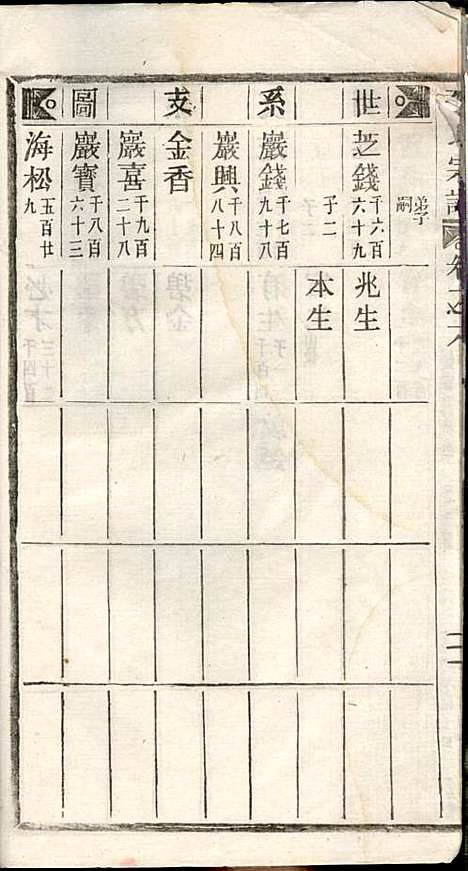 世系支圖
芝錢 千六百六十九
子二
巖錢 千七百九十八
巖興 千八百八十四
金香
巖喜 千九百二十八
巖寶 千八百六十三
海松 五百廿九
弟子嗣
兆生
本生
宗譜